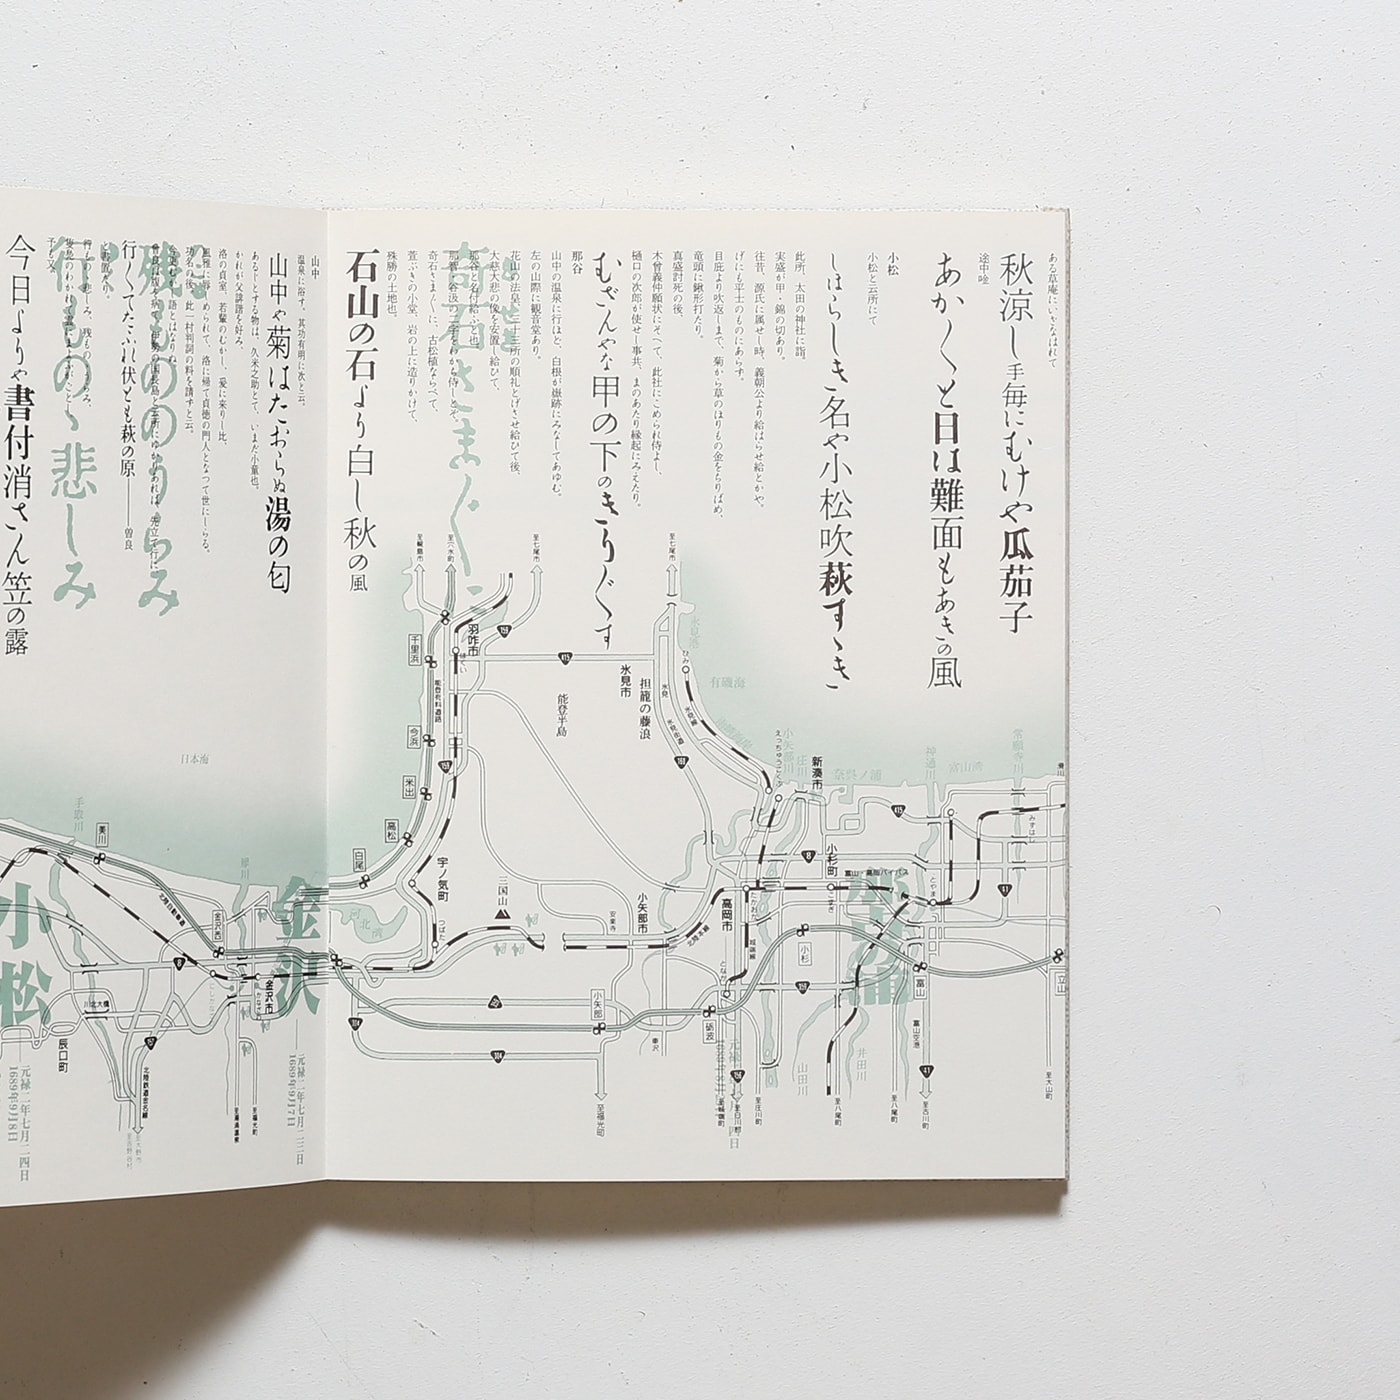 ある草庵にいざなはれて
秋涼し手毎にむけや瓜茄子
途中唫
あか〱と日は難面もあきの風
小松
小松と云所にて
しほらしき名や小松吹萩すゝき
此所、太田の神社に詣。
実盛が甲・錦の切あり。
往昔、源氏に属せし時、義朝公より給はらせ給とかや。
げにも平士のものにあらず。
目庇より吹返しまで、菊から草のほりもの金をちりばめ、
竜頭に鍬形打たり。
真盛討死の後、
木曾義仲願状にそへて、此社にこめられ侍よし、
樋口の次郎が使せし事共、まのあたり縁起にみえたり。
むざんやな甲の下のきり〲す
那谷
山中の温泉に行ほど、白根が嶽跡にみなしてあゆむ。
左の山際に観音堂あり。
花山の法皇、三十三所の順礼とげさせ給ひて後、
大慈大悲の像を安置し給ひて、
那谷と名付給ふと也。
那智・谷汲の二字をわかち侍しとぞ。
奇石さま〲に、古松植ならべて、
萱ぶきの小堂、岩の上に造りかけて、
殊勝の土地也。
奇石さま〲に
石山の石より白し秋の風
山中
温泉に浴す。其功有明に次と云。
山中や菊はたおらぬ湯の匂
あるじとする物は、久米之助とて、いまだ小童也。
かれが父俳諧を好み、
洛の貞室、若輩のむかし、爰に来りし比、
風雅に辱しめられて、洛に帰て貞徳の門人となつて世にしらる。
功名の後、此一村判詞の料を請ずと云。
行〱てたふれ伏とも萩の原――曽良
残もののうらみ
行ものゝ悲しみ
今日よりや書付消さん笠の露
至輪島市
至穴水町
至七尾市
至七尾市
千里浜
羽咋市
はくい
能登有料道路
今浜
米出
高松
白尾
宇ノ気町
能登半島
氷見市
担籠の藤浪
氷見
ひみ
氷見線
有磯海
159
415
160
新湊市
えっちゅうこくぶ
小矢部川
庄川
奈呉ノ浦
神通川
富山湾
常願寺川
滑川
みずはし
415
8
41
小杉町
こすぎ
富山・高岡バイパス
とやま
高岡市
たかおか
城端線
となみ
北陸本線
小矢部市
安楽寺
三国山
つばた
河北潟
日本海
手取川
美川
犀川
北陸自動車道
金沢西
金沢市
かなざわ
金沢
小松
川北大橋
辰口町
8
157
304
359
304
156
359
41
小矢部
砺波
小杉
富山
立山
富山空港
山田川
井田川
至福光町
至庄川町
至八尾町
至八尾町
至古川町
至大山町
北陸鉄道金名線
元禄二年七月二三日
1689年9月7日
元禄二年七月二四日
1689年9月8日